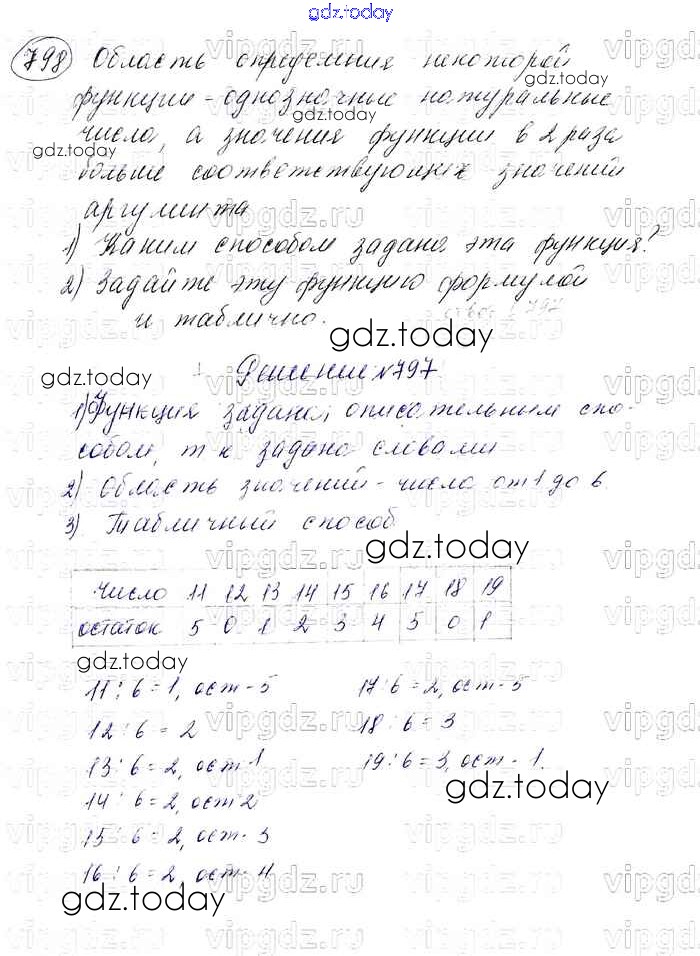 gdz.today
798 Область определения некоторой
функции - однозначные натуральные
числа, а значения функции в 2 раза
больше соответствующих значений
аргумента
1) Каким способом задана эта функция?
2) Задайте эту функцию формулой
и таблично.
Решение №797
1) Функция задана описательным спо-
собом, т к задана словами
2) Область значений - числа от 1 до 6
3) Табличный способ
число 11 12 13 14 15 16 17 18 19
остаток 5 0 1 2 3 4 5 0 1
11 : 6 = 1, ост - 5 17 : 6 = 2, ост - 5
12 : 6 = 2 18 : 6 = 3
13 : 6 = 2, ост - 1 19 : 6 = 3, ост - 1.
14 : 6 = 2, ост 2
15 : 6 = 2, ост - 3
16 : 6 = 2, ост - 4
gdz.today
vipgdz.ru